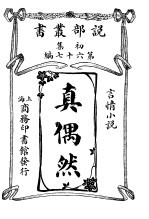 說部叢書
初集
第六十七編
言情小說
真偶然
上海
商務印書館發行